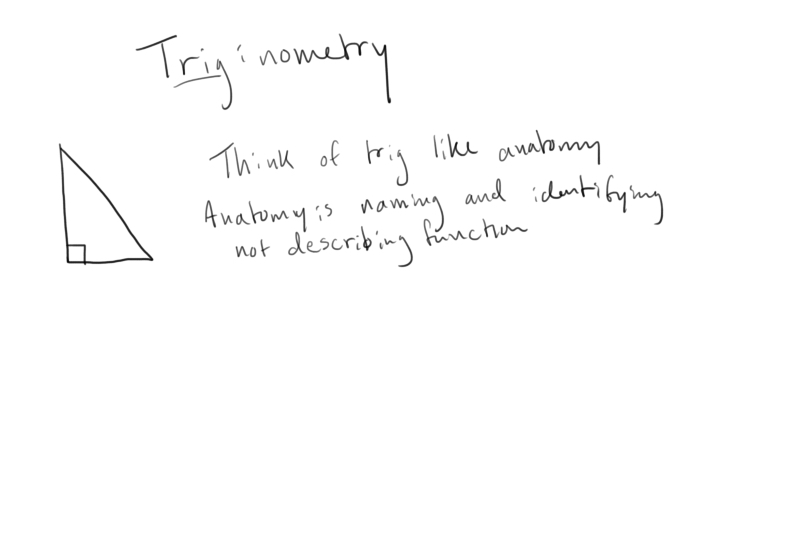 Triginometry
Think of trig like anatomy
Anatomy is naming and identifying
not describing function